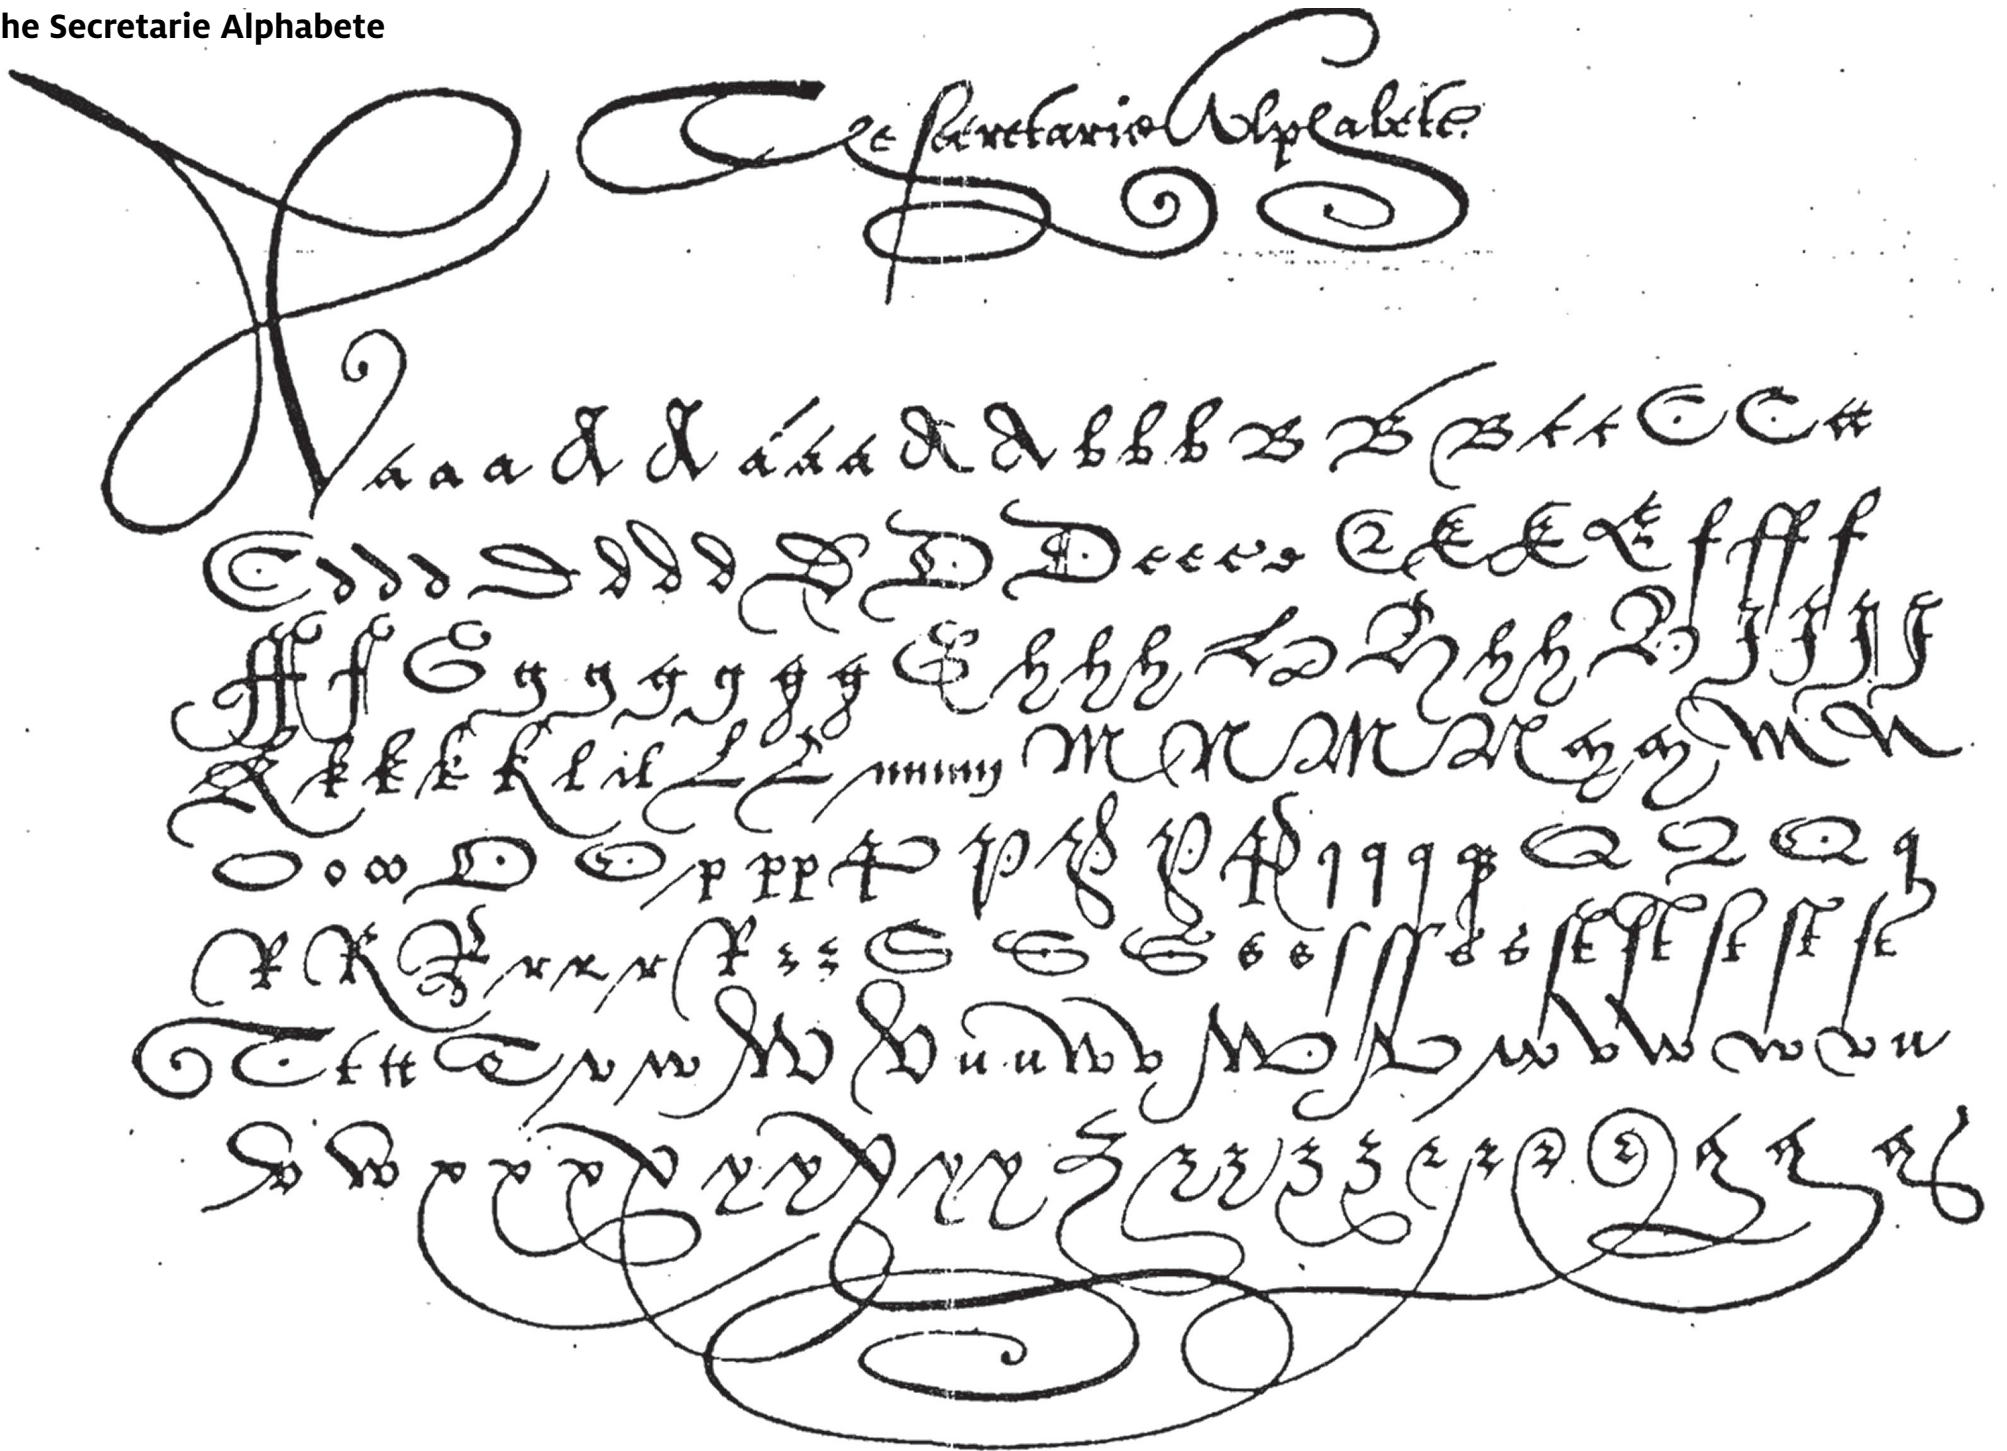 he Secretarie Alphabete
The Secretarie Alphabete.
a a a A A a a a A A b b b B B B c c C C cc
C d d d D d d d D D D e e e e E E E E f ff f
ff f G g g g g g g G h h h H H h h H J J J J
K k k k k l il L L mmm M N M N M N
O o oo O O p pp P P P P P q q q q Q Q Q q
R R R r r r R z z S S S s s ſ ſſ s s ſt ſt ſt ſt ſt
T t tt T v w W V u u w v W V w v w w v u
v w x x x x y y y y y z z z z z z z z z &amp; &amp; &amp;